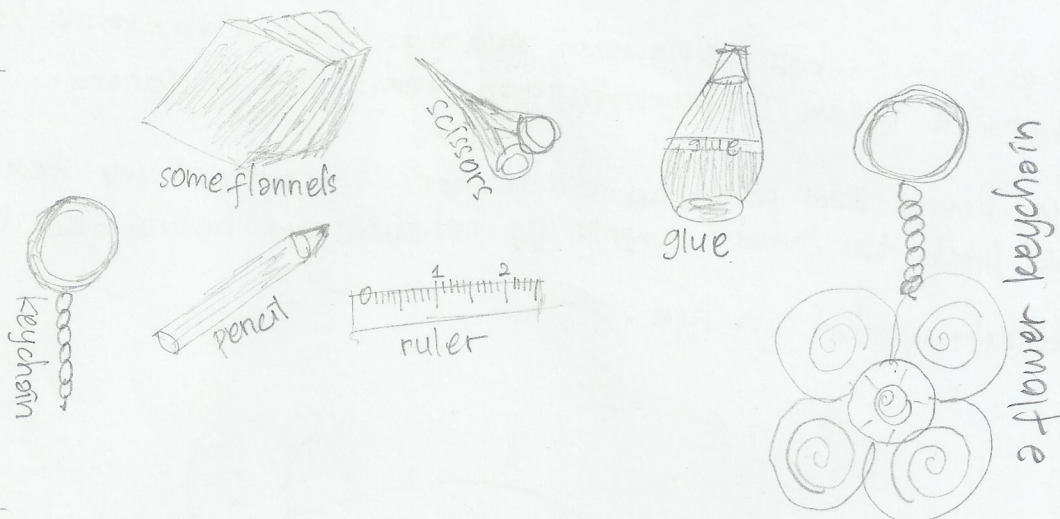 some flannels
scissors
glue
glue
keychain
pencil
0 1 2
ruler
a flower keychain